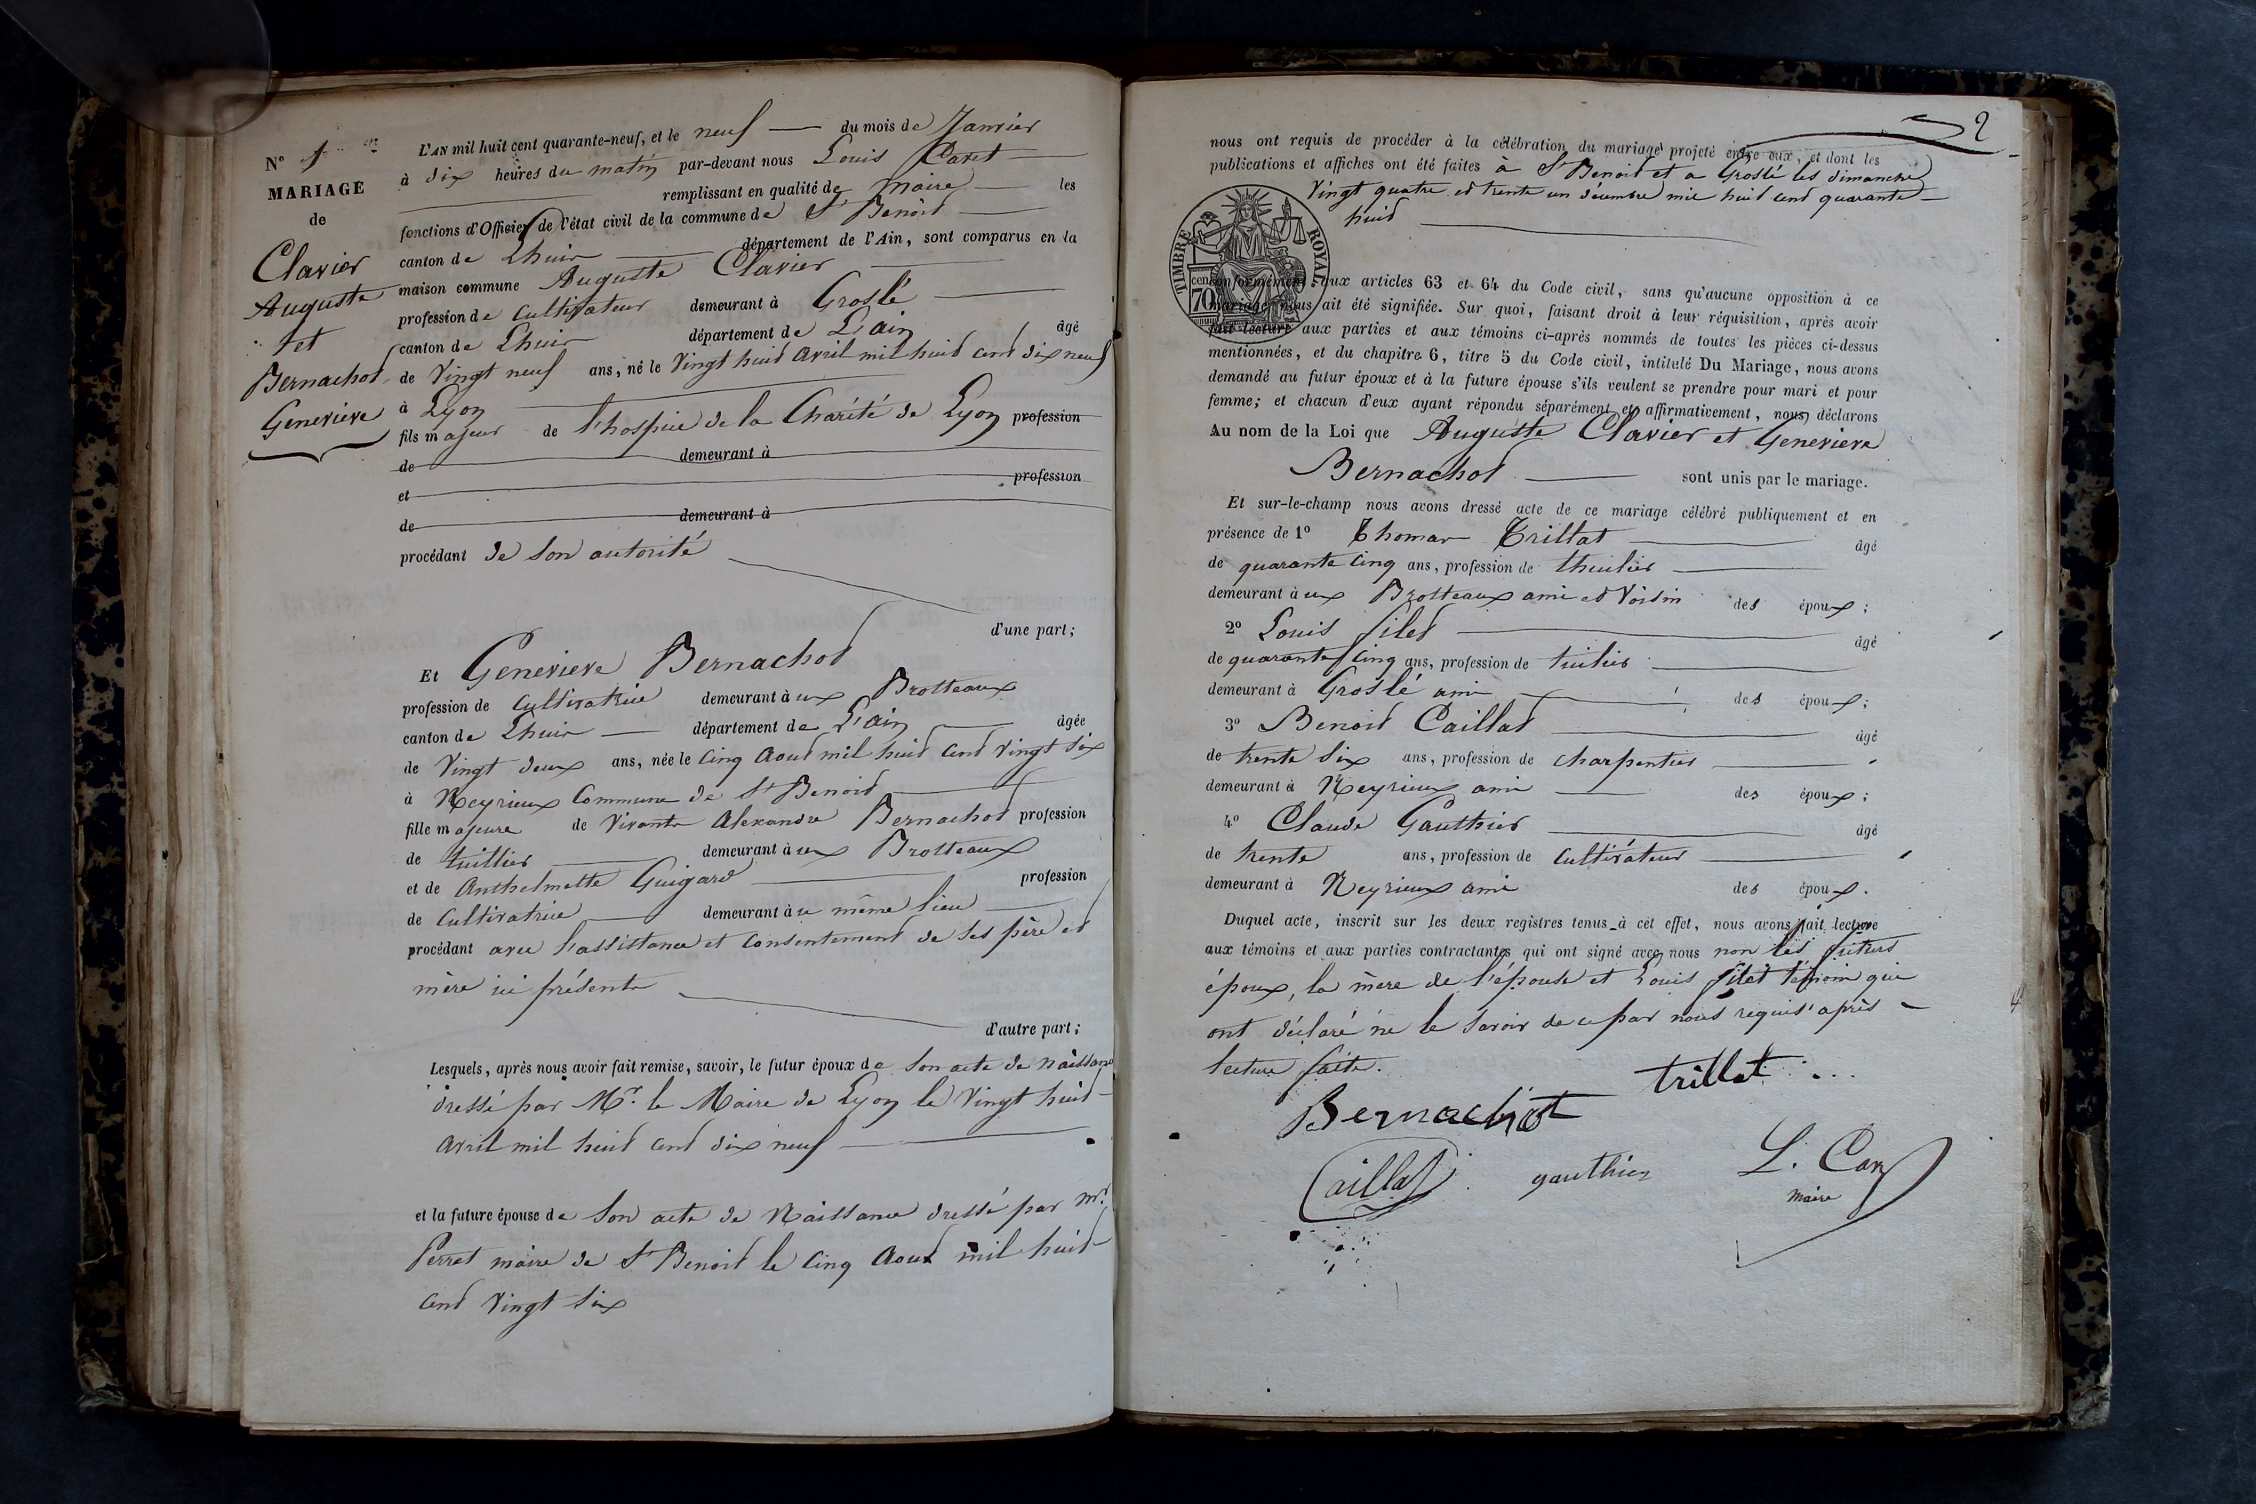 N° 1er
MARIAGE
de
Clavier
Auguste
et
Bernachod
Genevieve
L'AN mil huit cent quarante-neuf, et le neuf du mois de Janvier
à dix heures du matin par-devant nous Louis
remplissant en qualité de maire les
fonctions d'Officier de l'état civil de la commune de St Benoid
canton de Lhuis département de l'Ain, sont comparus en la
maison commune Auguste Clavier
profession de cultivateur demeurant à Groslé
canton de Lhuis département de L'ain âgé
de Vingt neuf ans, né le Vingt huid avril mil huid cend dix neuf
à Lyon
fils majeur de l'hospice de la Charité de Lyon profession
de demeurant à
et profession
de demeurant à
procédant de son autorité
d'une part;
Et Genevieve Bernachod
profession de cultivatrice demeurant à ux Brotteaux
canton de Lhuis département de L'ain âgée
de Vingt deux ans, née le cinq aoud mil huid cend vingt six
à Neyrieux Commune de St Benoid
fille majeure de vivants Alexandre Bernachod profession
de tuillier demeurant à ux Brotteaux
et de Anthelmette Guigard profession
de cultivatrice demeurant à u même lieu
procédant avec l'assistance et consentement de ses père et
mère ici présents
d'autre part;
Lesquels, après nous avoir fait remise, savoir, le futur époux de son acte de naissance
dressé par Mr. le Maire de Lyon le Vingt huid
avril mil huid cend dix neuf
et la future épouse de son acte de Naissance dressé par mr
Perret maire de St Benoid le cinq aoud mil huid
cend vingt six
2
nous ont requis de procéder à la célébration du mariage projeté entre eux, et dont les
publications et affiches ont été faites à St Benoid et a Groslé les dimanche
Vingt quatre et trente un décembre mil huid cend quarante
huid
TIMBRE ROYAL
70 cen
conformément aux articles 63 et 64 du Code civil, sans qu'aucune opposition à ce
mariage nous ait été signifiée. Sur quoi, faisant droit à leur réquisition, après avoir
fait lecture aux parties et aux témoins ci-après nommés de toutes les pièces ci-dessus
mentionnées, et du chapitre 6, titre 5 du Code civil, intitulé Du Mariage, nous avons
demandé au futur époux et à la future épouse s'ils veulent se prendre pour mari et pour
femme; et chacun d'eux ayant répondu séparément et affirmativement, nous déclarons
Au nom de la Loi que Auguste Clavier et Genevieve
Bernachod sont unis par le mariage.
Et sur-le-champ nous avons dressé acte de ce mariage célébré publiquement et en
présence de 1° Thomas Trillat âgé
de quarante cinq ans, profession de thuilier
demeurant à ux Brotteaux ami et voisin des époux;
2° Louis filed âgé
de quarante cinq ans, profession de tuilier
demeurant à Groslé ami des époux;
3° Benoid Caillad âgé
de trente six ans, profession de charpentier
demeurant à Neyrieux ami des époux;
4° Claude Gauthier âgé
de trente ans, profession de cultivateur
demeurant à Neyrieux ami des époux.
Duquel acte, inscrit sur les deux registres tenus à cet effet, nous avons fait lecture
aux témoins et aux parties contractantes qui ont signé avec nous non les futurs
époux, la mère de l'épouse et Louis filet témoin qui
ont déclaré ne le savoir de ce par nous requis après
lecture faite.
trillat
Bernachot
Caillat gauthier L. Car
maire